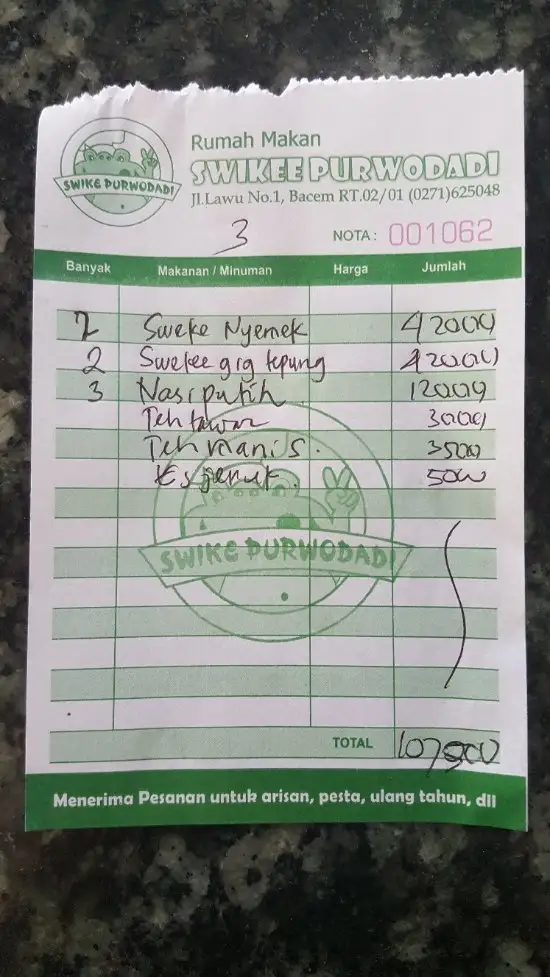 Rumah Makan
SWIKEE PURWODADI
SWIKE PURWODADI
Jl.Lawu No.1, Bacem RT.02/01 (0271)625048
3
NOTA: 001062
Banyak Makanan / Minuman Harga Jumlah
2 Sweke Nyemek 42000
2 Swekee grg tepung 42000
3 Nasi putih 12000
Teh tawar 3000
Teh manis. 3500
Es jeruk. 5000
SWIKE PURWODADI
TOTAL 107500
Menerima Pesanan untuk arisan, pesta, ulang tahun, dll